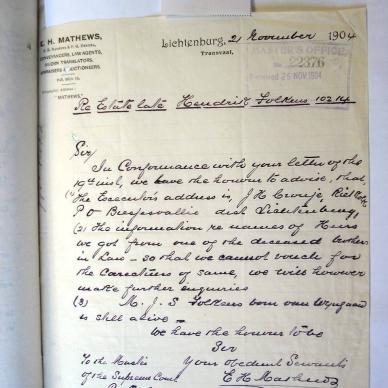 E. H. MATHEWS,
LAW AGENTS,
TRANSLATORS,
& AUCTIONEERS
"MATHEWS,"
Lichtenburg, 21 November 1904
Transvaal,
MASTER'S OFFICE
No. 22376
Received 25 NOV. 1904
Re Estate late Hendrik Folkens 10214
Sir
In Conformance with your letter of the
19th inst, we have the honour to advise, that,
(1) The Executors address is, J H Cronje,
P O dist Lichtenburg,
(2) The information re names of Heirs
we got from one of the deceased brothers
in Law — so that we cannot vouch for
the Correctness of same, we will however
make further enquiries
(3) M. J. S Folkens born
is still alive —
We have the honour to be
Sir
To the Master Your obedient Servants
of the Supreme Court E H Mathews